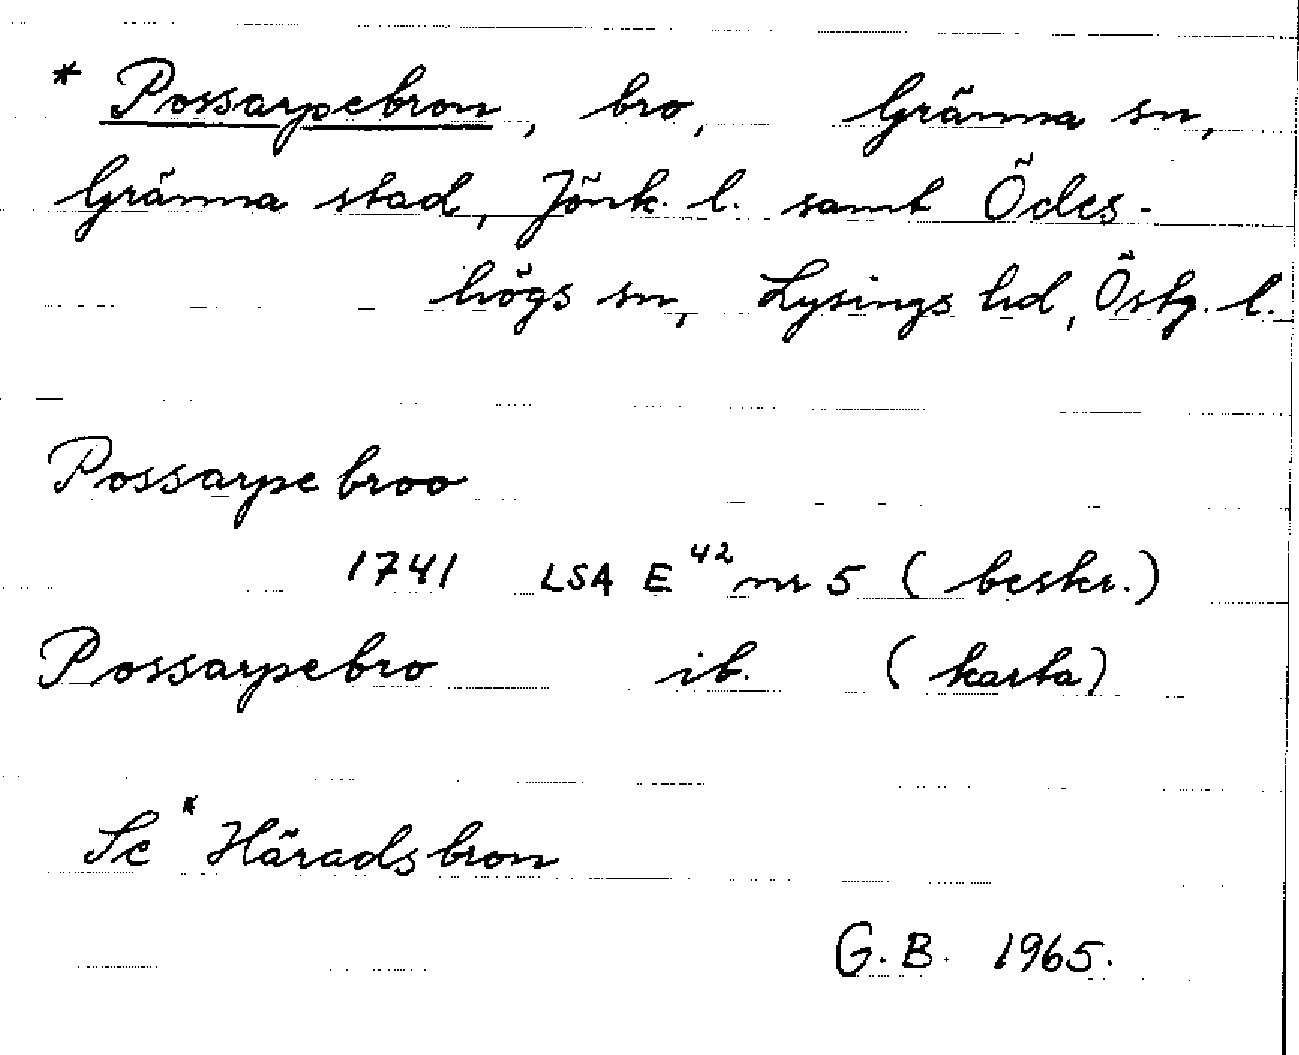 * Possarpebron, bro, Gränna sn,
Gränna stad, Jönk. l. samt Ödes-
högs sn, Lysings hd, Östg. l.
Possarpe broo
1741 LSA E 42 nr 5 (beskr.)
Possarpebro ib. (karta)
Se * Häradsbron
G.B. 1965.